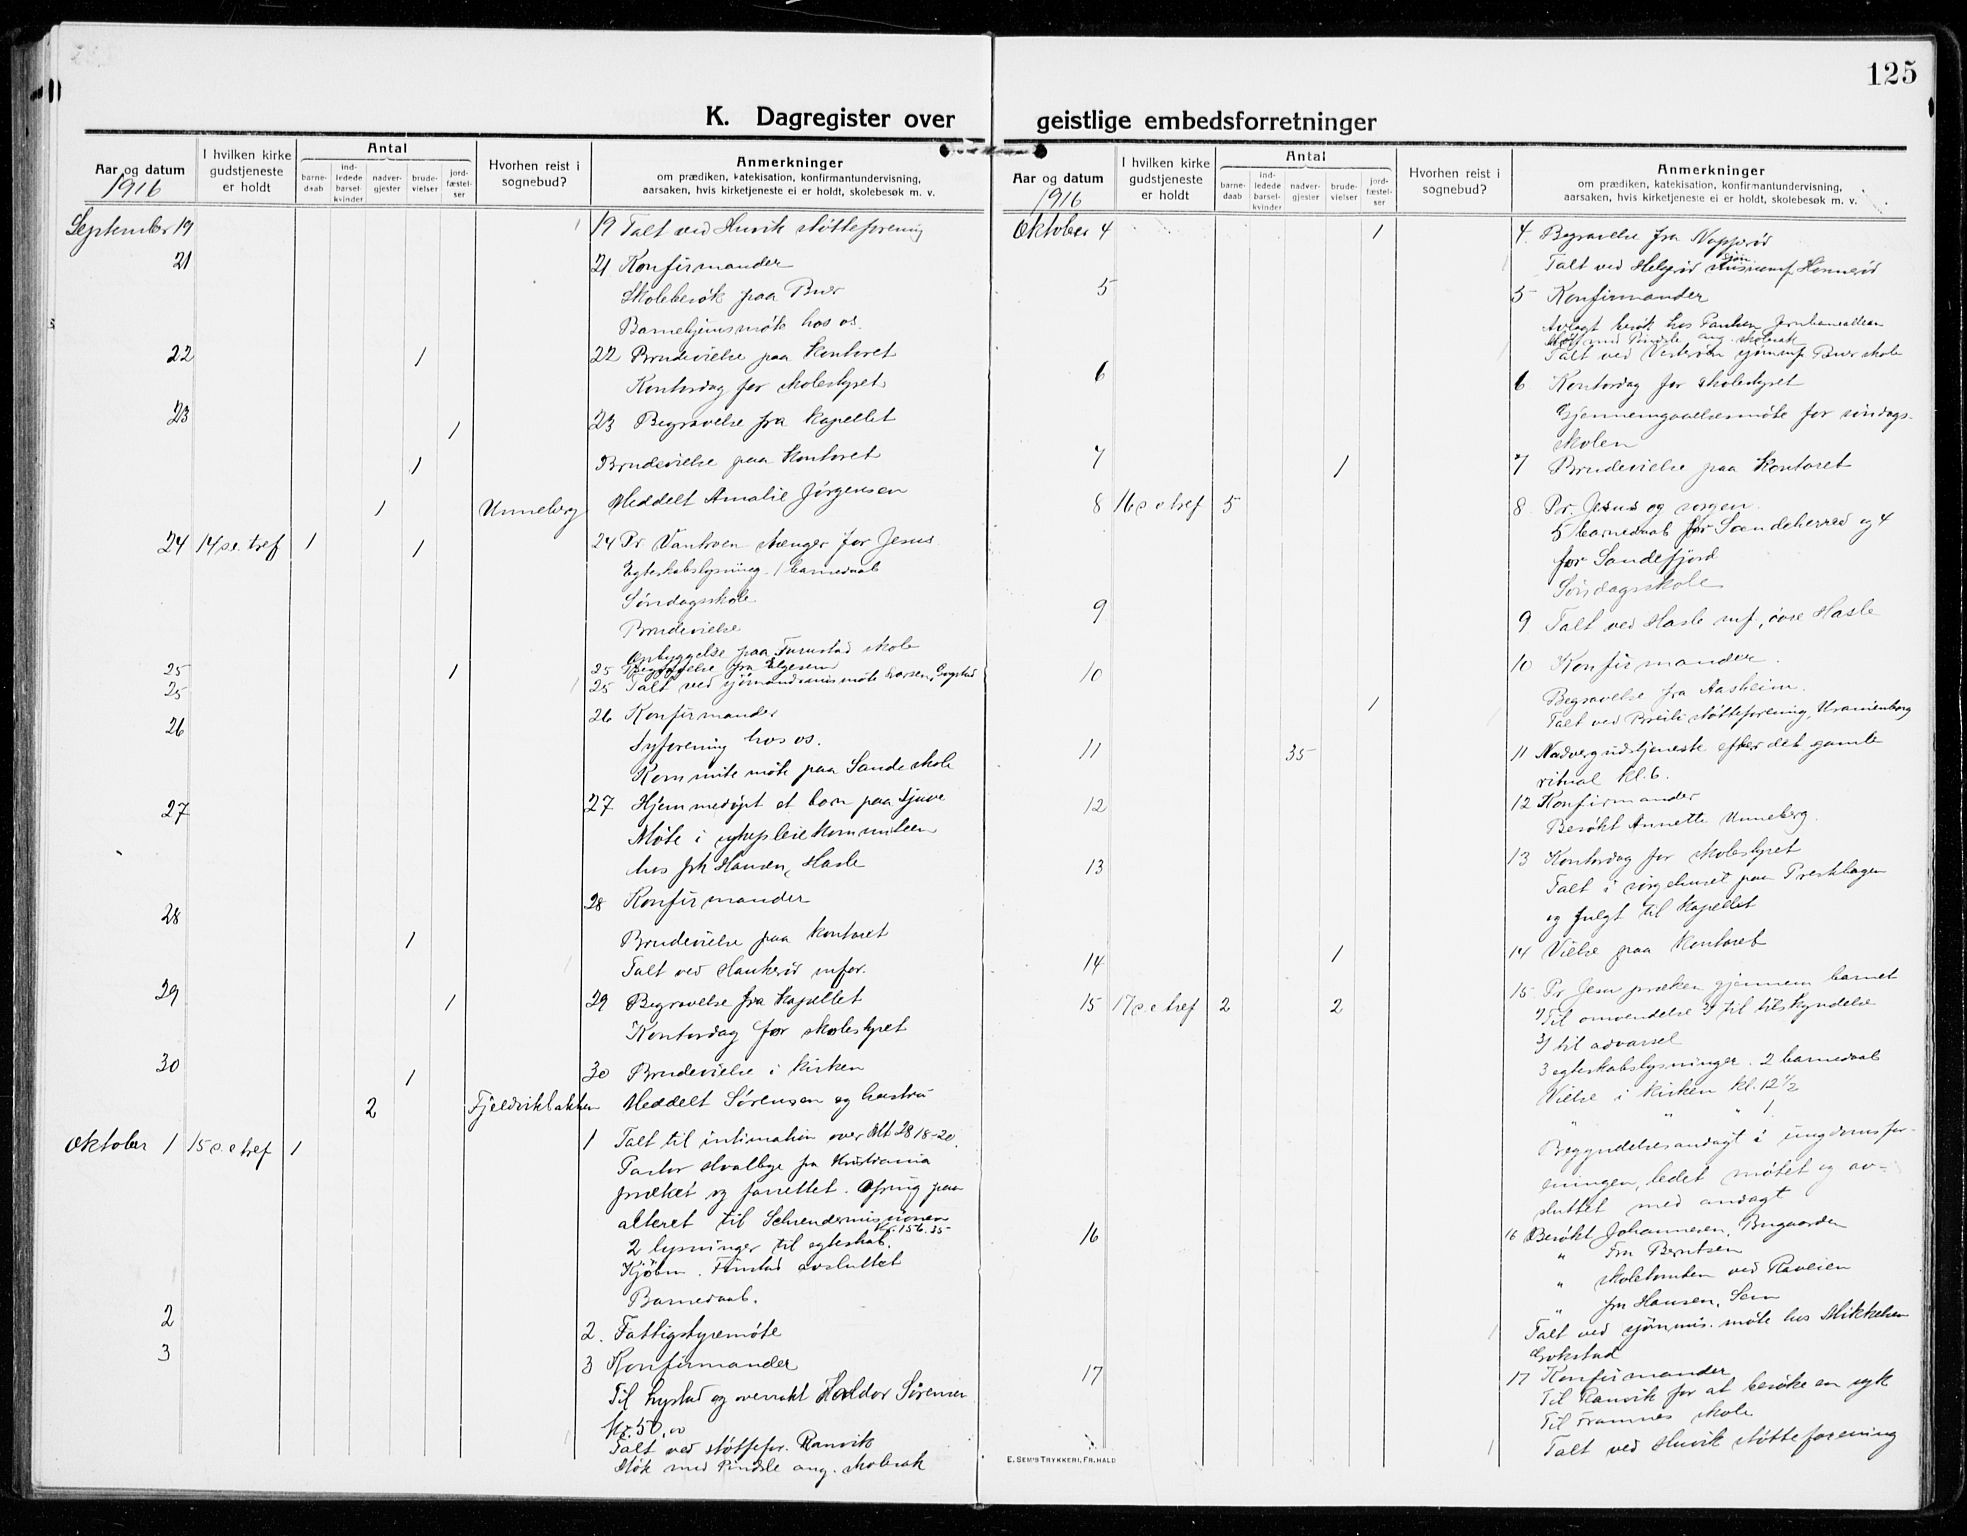 125
K. Dagregister over geistlige embedsforretninger
Aar og datum
1916
I hvilken kirke gudstjeneste er holdt
Antal
barne-daab
ind-ledede barsel-kvinder
nadver-gjester
brude-vielser
jord-fæstel-ser
Hvorhen reist i sognebud?
Anmerkninger
om prædiken, katekisation, konfirmantundervisning,
aarsaken, hvis kirketjeneste ei er holdt, skolebesøk m. v.
September 19 19 Talt ved Huvik støtteforening
21 21 Konfirmander
Skolebesøk paa Bur
Barnehjemsmøte hos os.
22 1 22 Brudevielse paa kontoret
Kontordag for skolestyret
23 1 23 Begravelse fra kapellet
1 Brudevielse paa kontoret
1 Unneberg Meddelt Amalie Jørgensen
24 14 s.e. tref 1 1 24 Pr Vantroen stænger for Jesus
Egteskabslysning. 1 barnedaab
Søndagsskole
Brudevielse
Opbyggelse paa Furustad skole
25 1 25 Begravelse fra Elgesem
25 25 Talt ved sjømandsmis møte Larsen, Gogstad
26 26 Konfirmander
Syforening hos os.
Kommite møte paa Sande skole
27 27 Hjemmedøpt et barn paa
Møte i sykepleie kommiteen
hos frk Hansen, Hasle
28 28 Konfirmander
1 Brudevielse paa kontoret
Talt ved Haukerød mfor.
29 1 29 Begravelse fra kapellet
Kontordag for skolestyret
30 1 30 Brudevielse i kirken
2 Fjeldvikbakken Meddelt Sørensen og hustru
Oktober 1 15 s.e tref 1 1 Talt til intimation over Mt 28 18-20.
Pastor Hvalbye fra Kristiania
præket og forrettet. Ofring paa
alteret til Scheudermissionen
Kr. 156.35
2 lysninger til egteskab.
Kjøbm. Finstad avsluttet
Barnedaab.
2 2. Fattigstyremøte
3 3 Konfirmander
Til Lystad og overrakt Haldor Sørensen
Kr. 50,00
Talt ved støttefor. Ranvik
Møte med Pindsle ang. skolesak
Aar og datum
1916
I hvilken kirke gudstjeneste er holdt
Antal
barne-daab
ind-ledede barsel-kvinder
nadver-gjester
brude-vielser
jord-fæstel-ser
Hvorhen reist i sognebud?
Anmerkninger
om prædiken, katekisation, konfirmantundervisning,
aarsaken, hvis kirketjeneste ei er holdt, skolebesøk m. v.
Oktober 4 1 4. Begravelse fra Napperød
Talt ved Helgerød Hønnerød
5 5 Konfirmander
Avlagt besøk hos Paulsen Jernbanealleen
Møte med Pindsle ang. skolesak
Talt ved Vesterøen sjømmf Bur skole
6 6 Kontordag for skolestyret
Gjennemgaaelsesmøte for søndags-
skolen
7 1 7 Brudevielse paa kontoret
8 16 s e tref 5 8. Pr. Jesus og sorgen.
5 barnedaab for Sandeherred og 4
for Sandefjord
Søndagsskole
9 9 Talt ved Hasle mf, øvre Hasle
10 10 Konfirmander.
Begravelse fra Aasheim.
1 Talt ved Breili støtteforening, Uranienborg
11 35 11 Nadvergudstjeneste efter det gamle
ritual kl. 6.
12 12 Konfirmander
Besøkt Annette Unneberg.
13 13 Kontordag for skolestyret
Talt i sørgehuset paa Presthagen
og fulgt til kapellet
14 1 14 Vielse paa kontoret
15 17 s.e tref 2 2 15. Pr Jesu præken gjennem barnet
1) Til omvendelse 2) til tilskyndelse
3) til advarsel
3 egteskabslysninger. 2 barnedaab
Vielse i kirken kl. 12 1/2
" " " 1
Begyndelsesandagt i ungdomsfor-
eningen, ledet møtet og av-
sluttet med andagt
16 16 Besøkt Johannesen, Bugaarden
" Fru Berntsen
" skoletomten ved Raveien
" fru Hansen, Sem
Talt ved sjømmis. møte hos Mikkelsen
Gokstad
17 17 Konfirmander
Til Ranvik for at besøke en syk
Til Framnes skole
Talt ved Huvik støtteforening
E. SEM'S TRYKKERI, FR. HALD